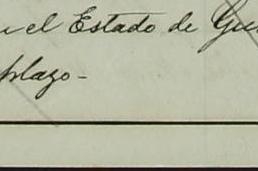 el Estado de
plazo-